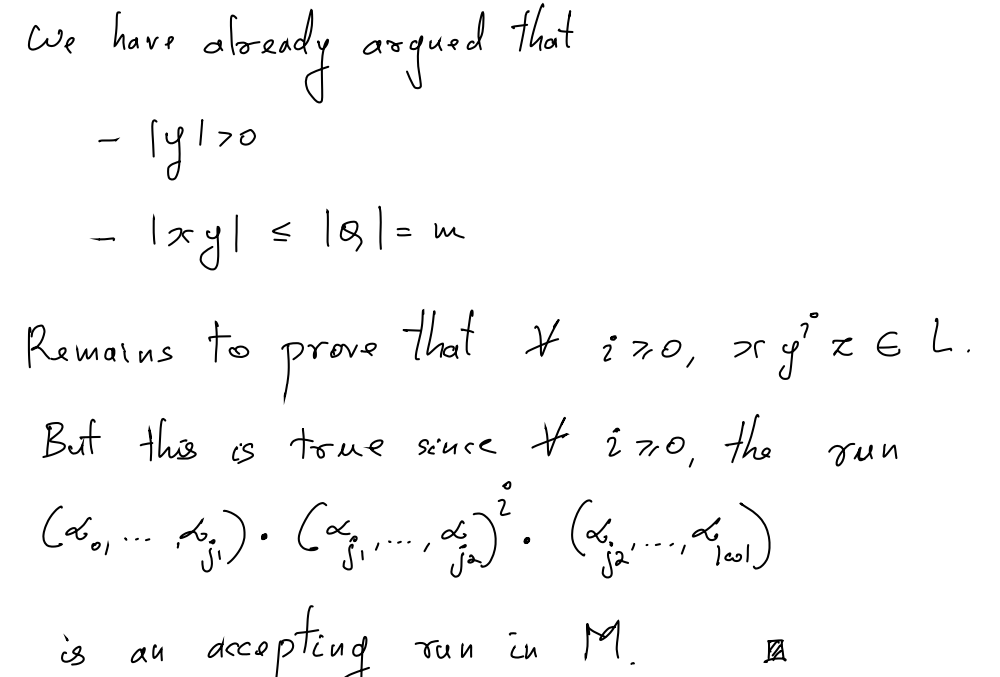 We have already argued that
- |y| > 0
- |xy| ≤ |Q| = m
Remains to prove that ∀ i ≥ 0, x y^i z ∈ L.
But this is true since ∀ i ≥ 0, the run
(α_0, ... , α_{j_1}) · (α_{j_1}, ..., α_{j_2})^i · (α_{j_2}, ..., α_{|ω|})
is an accepting run in M.